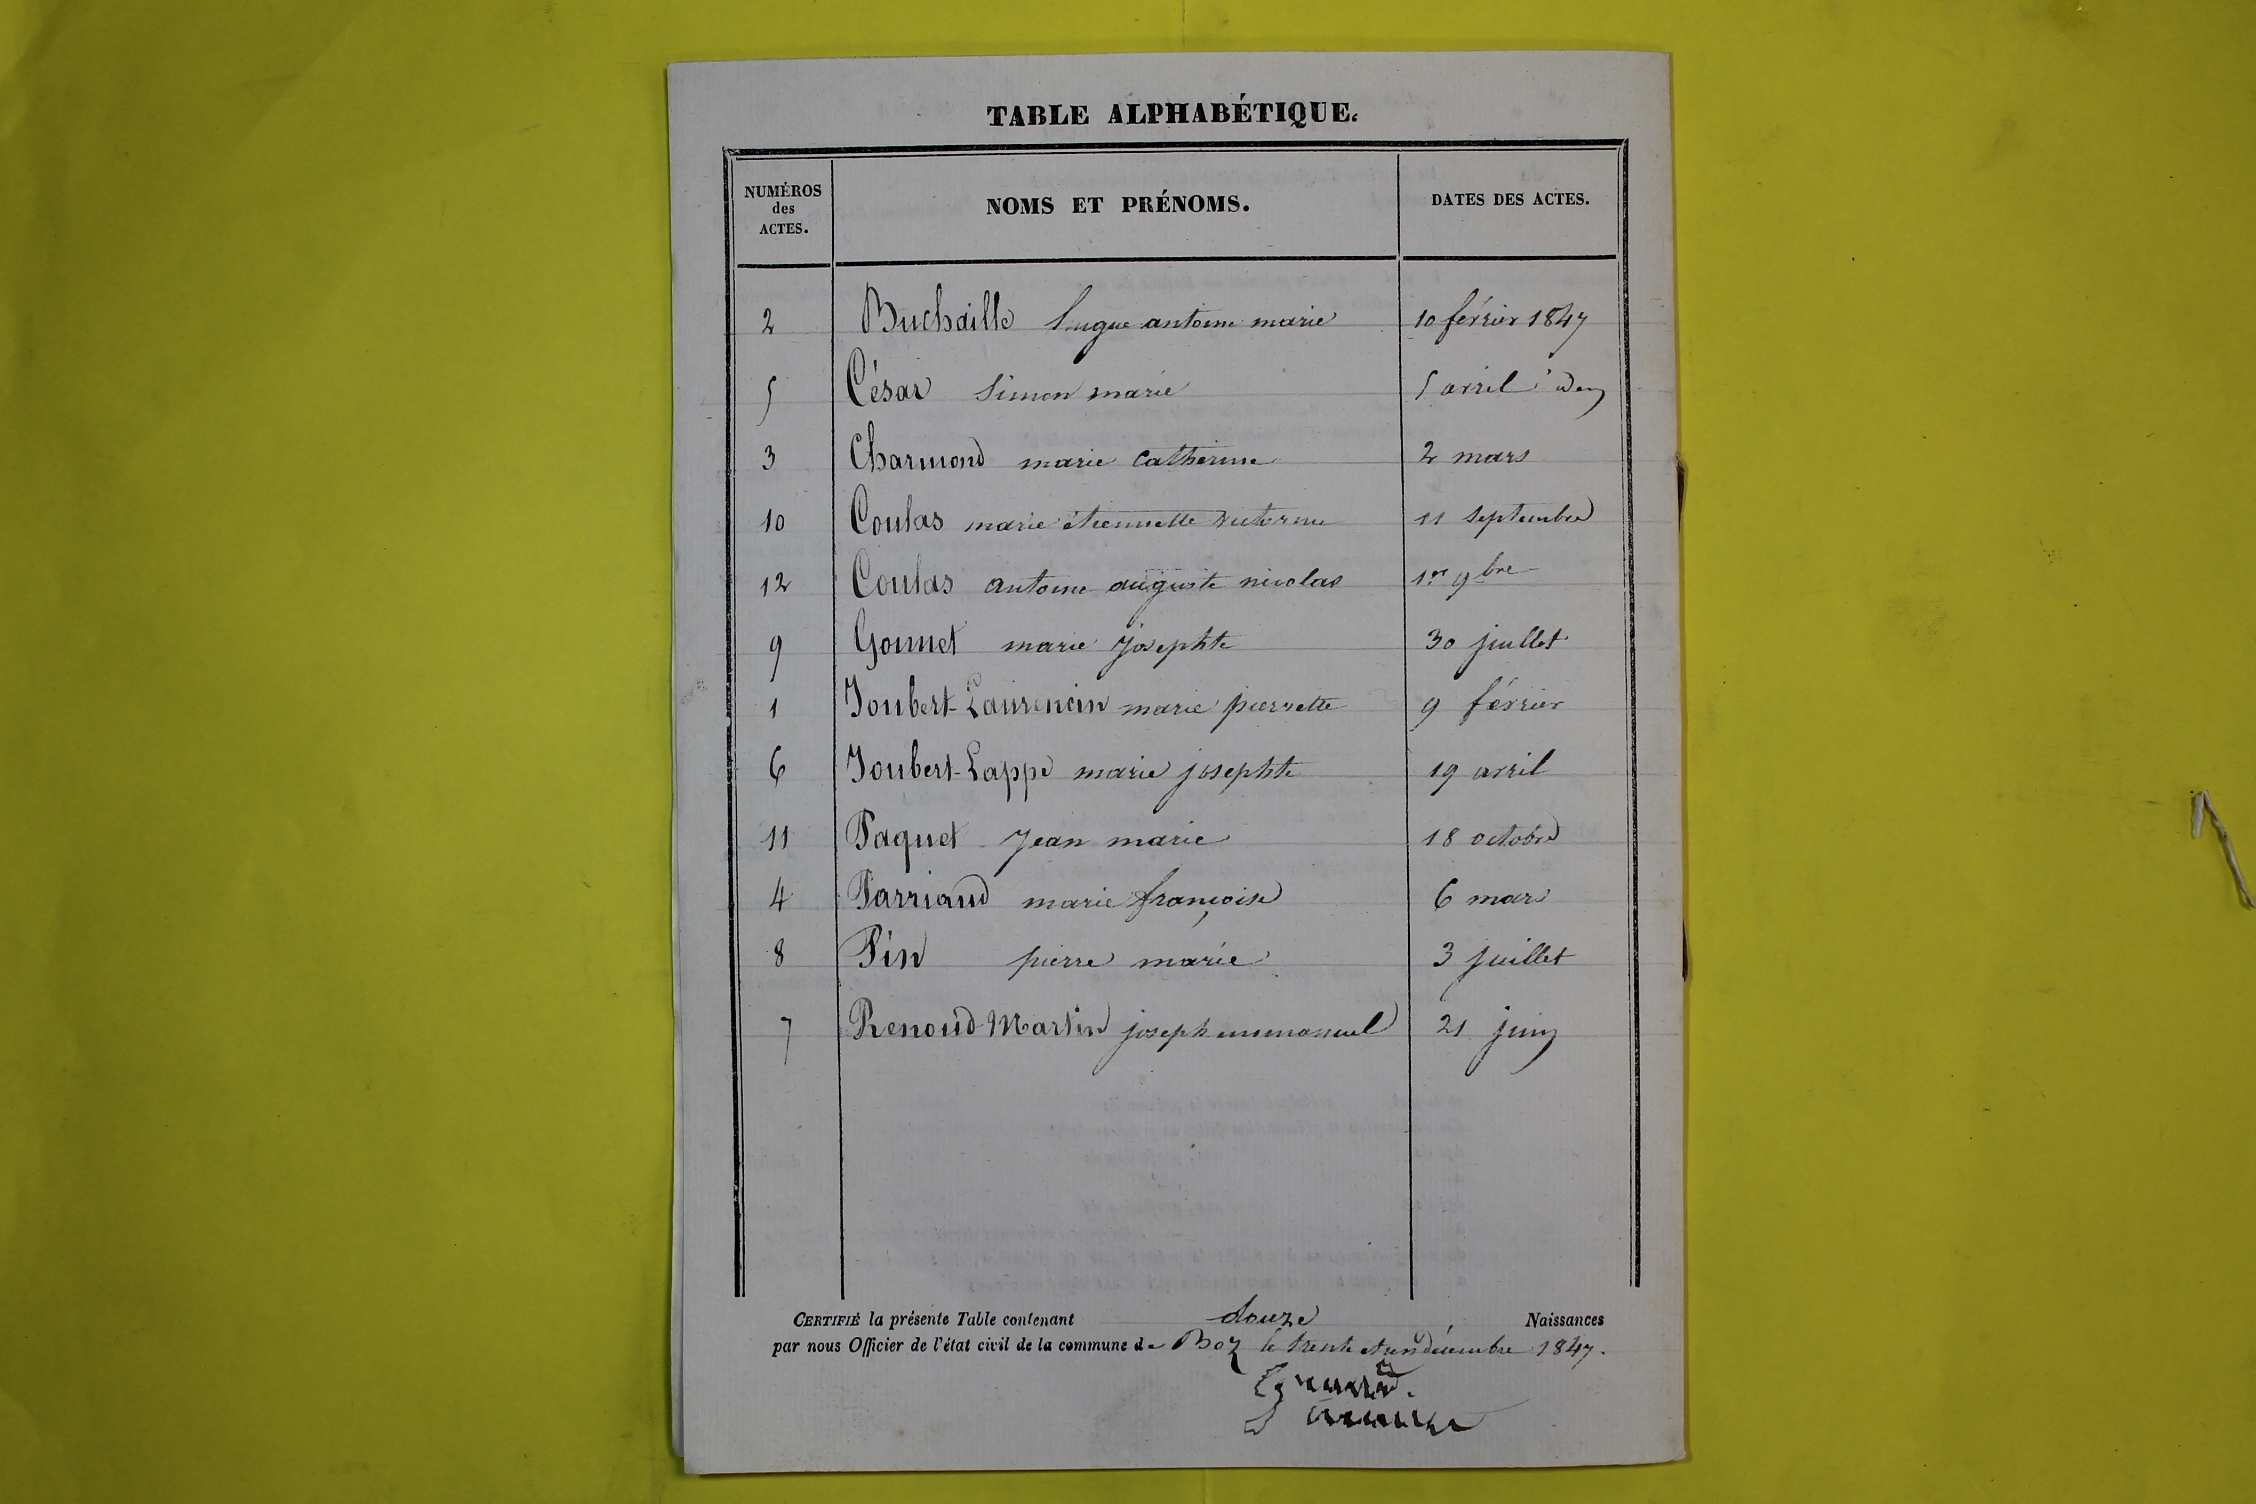 TABLE ALPHABÉTIQUE.
NUMÉROS
des
ACTES.
NOMS ET PRÉNOMS.
DATES DES ACTES.
2 Buchaille hugue antoine marie 10 février 1847
5 César Simon marie 5 avril idem
3 Charmond marie catherine 2 mars
10 Coulas marie étiennette victorine 11 septembre
12 Coulas antoine auguste nicolas 1er 9bre
9 Gonnet marie josephte 30 juillet
1 Joubert-Laurencin marie pierrette 9 février
6 Joubert-Lappe marie josephte 19 avril
11 Paquet Jean marie 18 octobre
4 Parriaud marie françoise 6 mars
8 Pin pierre marie 3 juillet
7 Renoud-Martin joseph emmanuel 21 juin
CERTIFIÉ la présente Table contenant douze Naissances
par nous Officier de l'état civil de la commune de Boz le trente et un décembre 1847.